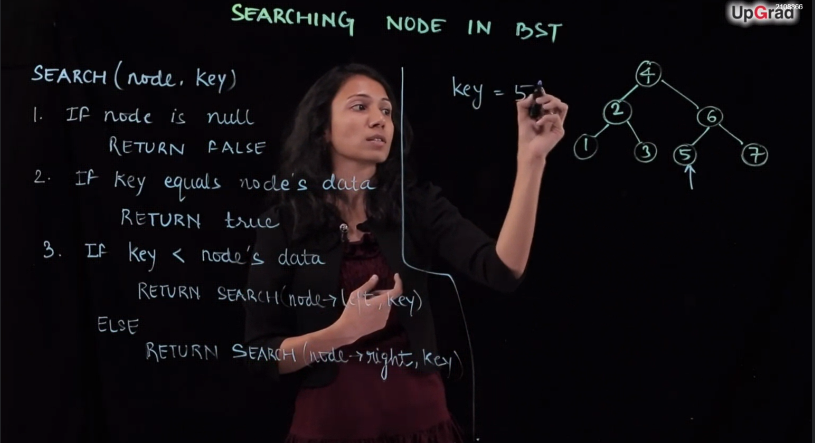 SEARCHING NODE IN BST
UpGrad
2108366
SEARCH(node, key)
1. IF node is null
RETURN FALSE
2. IF key equals node's data
RETURN true
3. IF key < node's data
RETURN SEARCH(node→left, key)
ELSE
RETURN SEARCH(node→right, key)
key = 5
4
2 6
1 3 5 7